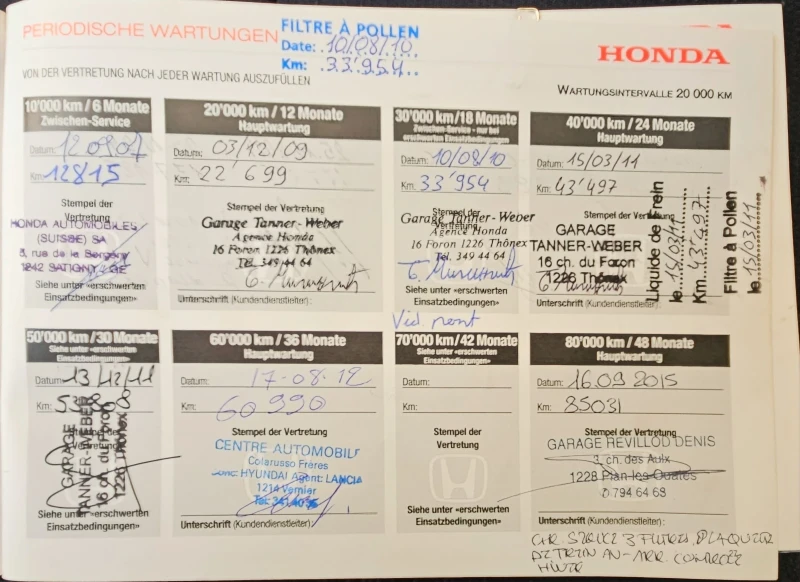 PERIODISCHE WARTUNGEN
FILTRE À POLLEN
Date: 10/08/10
Km: 33'954
HONDA
VON DER VERTRETUNG NACH JEDER WARTUNG AUSZUFÜLLEN
WARTUNGSINTERVALLE 20 000 KM
10'000 km / 6 Monate
Zwischen-Service
Datum: 12 09 07
Km: 12815
Stempel der
Vertretung
HONDA AUTOMOBILES
(SUISSE) SA
5, rue de la Bergère
1242 SATIGNY / GE
Siehe unter «erschwerten
Einsatzbedingungen»
20'000 km / 12 Monate
Hauptwartung
Datum: 03/12/09
Km: 22'699
Stempel der Vertretung
Garage Tanner-Weber
Agence Honda
16 Foron 1226 Thônex
Tél. 349 44 64
Unterschrift (Kundendienstleiter):
30'000 km/18 Monate
Zwischen-Service - nur bei
erschwerten Einsatzbedingungen
Datum: 10/08/10
Km: 33'954
Stempel der
Vertretung
Garage Tanner-Weber
Agence Honda
16 Foron 1226 Thônex
Tél. 349 44 64
Siehe unter «erschwerten
Einsatzbedingungen»
40'000 km / 24 Monate
Hauptwartung
Datum: 15/03/11
Km: 43'497
Stempel der Vertretung
GARAGE
TANNER-WEBER
16 ch. du Foron
1226 Thônex
Unterschrift (Kundendienstleiter):
Liquide de frein
le 15/03/11
Km 43'497
Filtre à Pollen
le 15/03/11
50'000 km / 30 Monate
Siehe unter «erschwerten
Einsatzbedingungen»
Datum: 13/12/11
Km:
Stempel der
Vertretung
GARAGE
TANNER-WEBER
16 ch. du Foron
1226 Thônex
Siehe unter «erschwerten
Einsatzbedingungen»
60'000 km / 36 Monate
Hauptwartung
Datum: 17-08-12
Km: 60 990
Stempel der Vertretung
CENTRE AUTOMOBILE
Colarusso Frères
HYUNDAI Agent: LANCIA
1214 Vernier
Unterschrift (Kundendienstleiter):
70'000 km/42 Monate
Siehe unter «erschwerten
Einsatzbedingungen»
Datum:
Km:
Stempel der
Vertretung
Siehe unter «erschwerten
Einsatzbedingungen»
80'000 km / 48 Monate
Hauptwartung
Datum: 16.09 2015
Km: 85031
Stempel der Vertretung
GARAGE REVILLOD DENIS
3, ch. des Aulx
1228 Plan-les-Ouates
794 64 68
Unterschrift (Kundendienstleiter):
3 FILTRES, PLAQUETTE